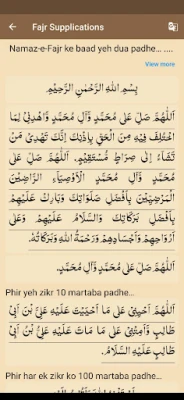 Fajr Supplications
Namaz-e-Fajr ke baad yeh dua padhe... ....
View more
بِسْمِ اللهِ الرَّحْمٰنِ الرَّحِيْمِ
اَللّٰهُمَّ صَلِّ عَلٰى مُحَمَّدٍ وَّآلِ مُحَمَّدٍ وَّاهْدِنِيْ لِمَا
اخْتُلِفَ فِيْهِ مِنَ الْحَقِّ بِاِذْنِكَ اِنَّكَ تَهْدِيْ مَنْ
تَشَآءُ اِلٰى صِرَاطٍ مُّسْتَقِيْمٍ. اَللّٰهُمَّ صَلِّ عَلٰى
مُحَمَّدٍ وَّآلِ مُحَمَّدٍ الْاَوْصِيَآءِ الرَّاضِيْنَ
الْمَرْضِيِّيْنَ بِاَفْضَلِ صَلَوَاتِكَ وَبَارِكْ عَلَيْهِمْ
بِاَفْضَلِ بَرَكَاتِكَ وَالسَّلَامُ عَلَيْهِمْ وَعَلٰى
اَرْوَاحِهِمْ وَاَجْسَادِهِمْ وَرَحْمَةُ اللهِ وَبَرَكَاتُهٗ.
اَللّٰهُمَّ صَلِّ عَلٰى مُحَمَّدٍ وَّآلِ مُحَمَّدٍ.
Phir yeh zikr 10 martaba padhe...
اَللّٰهُمَّ اَحْيِنِيْ عَلٰى مَا اَحْيَيْتَ عَلَيْهِ عَلِيَّ بْنَ اَبِيْ
طَالِبٍ وَّاَمِتْنِيْ عَلٰى مَا مَاتَ عَلَيْهِ عَلِيُّ بْنُ اَبِيْ
طَالِبٍ عَلَيْهِ السَّلَامُ.
Phir har ek zikr ko 100 martaba padhe...